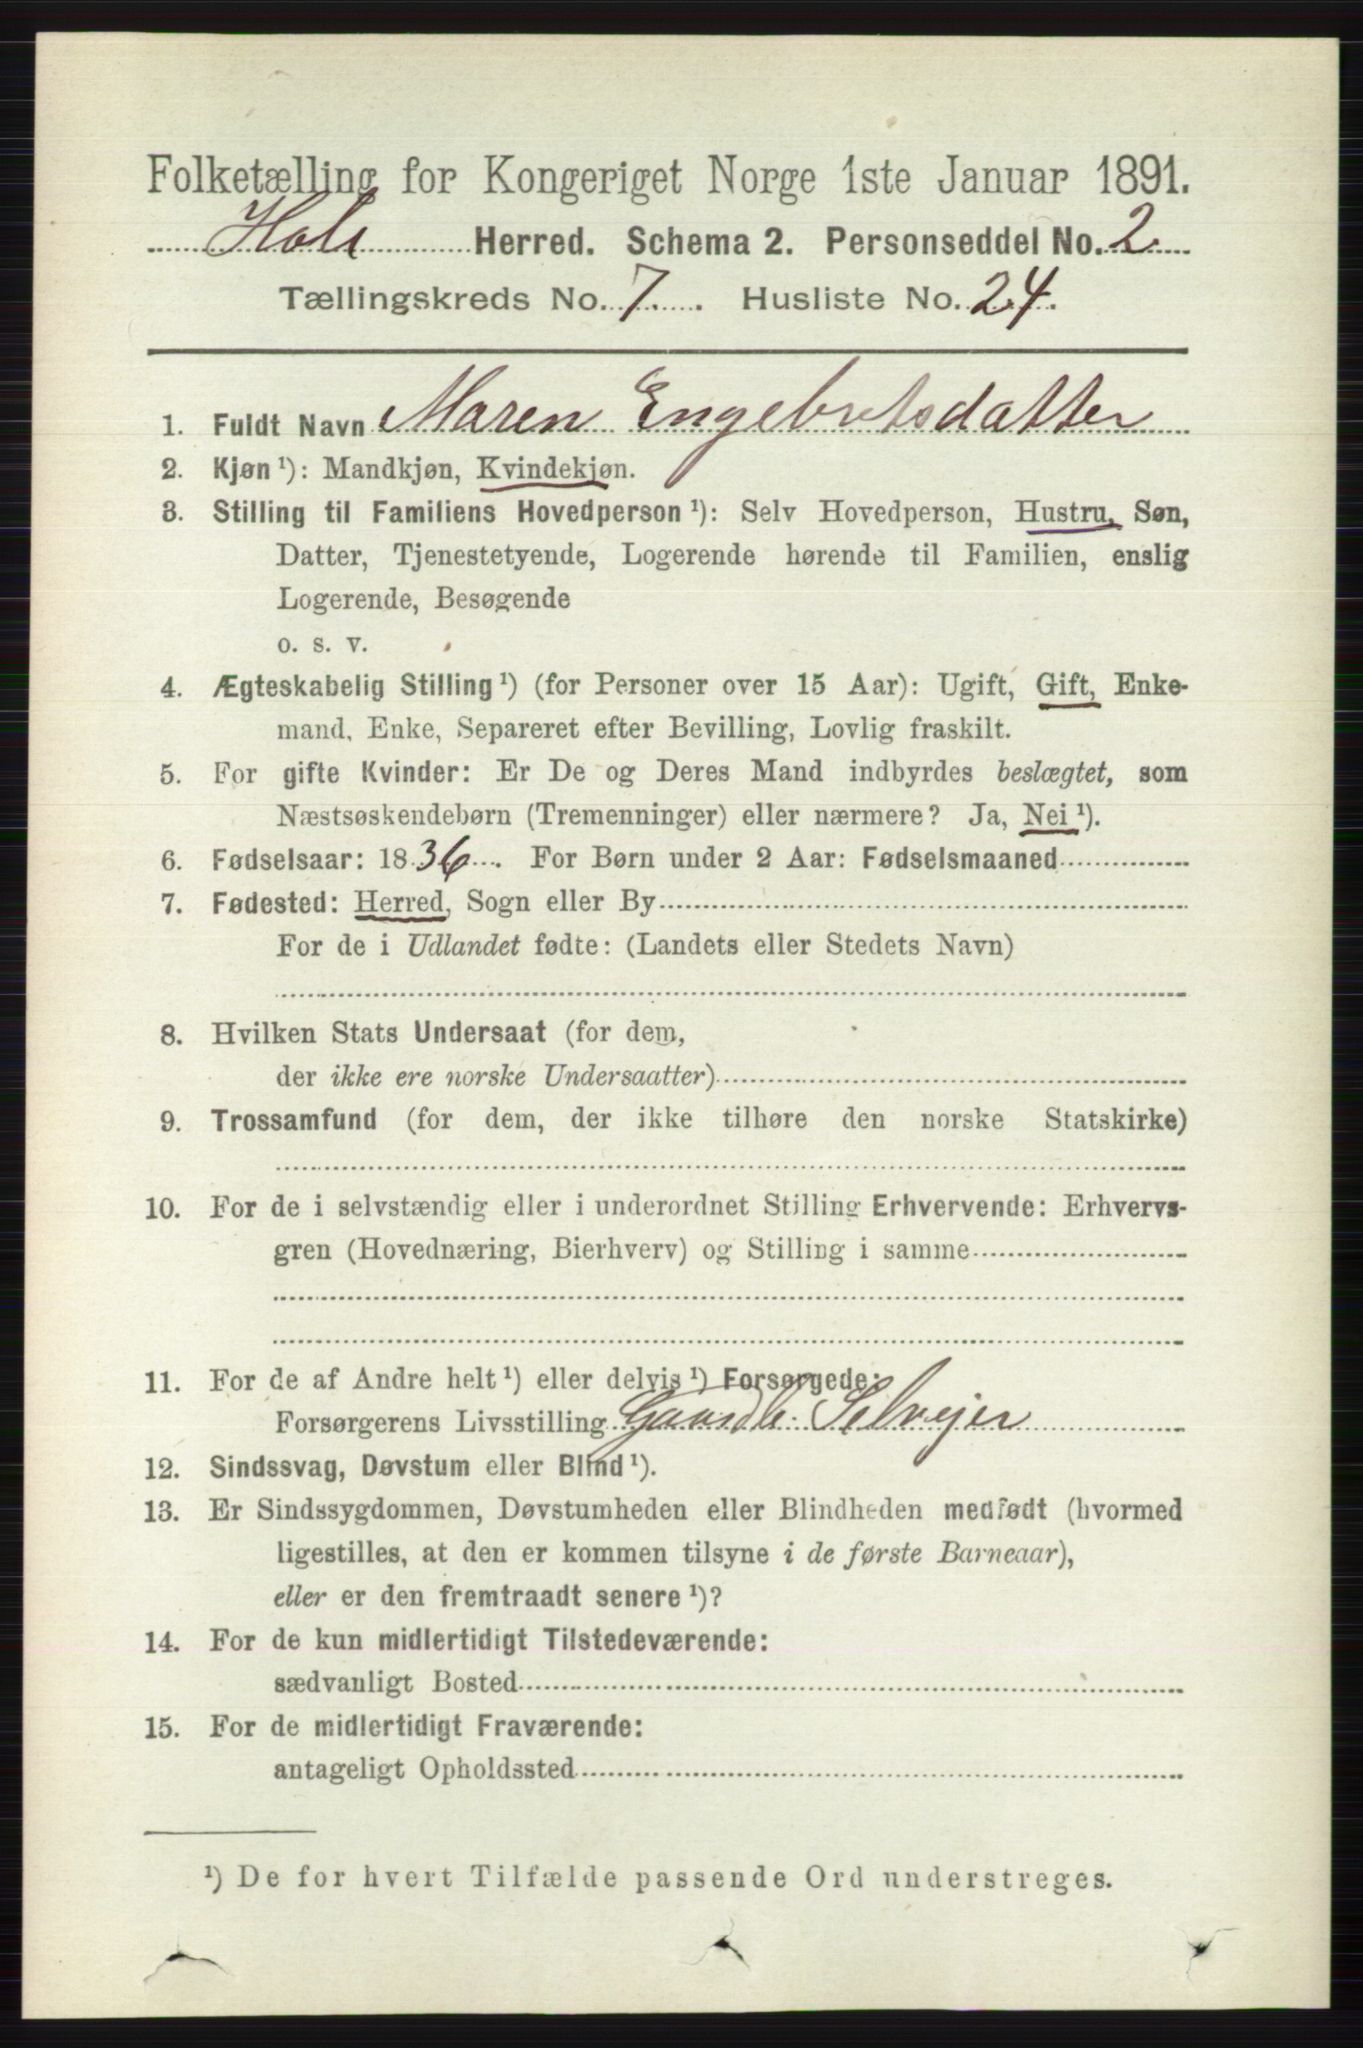 Folketælling for Kongeriget Norge 1ste Januar 1891.
Hole Herred. Schema 2. Personseddel No. 2
Tællingskreds No. 7. Husliste No. 24.
1. Fuldt Navn Maren Engebretsdatter
2. Kjøn ¹): Mandkjøn, Kvindekjøn.
3. Stilling til Familiens Hovedperson ¹): Selv Hovedperson, Hustru, Søn,
Datter, Tjenestetyende, Logerende hørende til Familien, enslig
Logerende, Besøgende
o. s. v.
4. Ægteskabelig Stilling ¹) (for Personer over 15 Aar): Ugift, Gift, Enke-
mand, Enke, Separeret efter Bevilling, Lovlig fraskilt.
5. For gifte Kvinder: Er De og Deres Mand indbyrdes beslægtet, som
Næstsøskendebørn (Tremenninger) eller nærmere? Ja, Nei ¹).
6. Fødselsaar: 1836. For Børn under 2 Aar: Fødselsmaaned
7. Fødested: Herred, Sogn eller By
For de i Udlandet fødte: (Landets eller Stedets Navn)
8. Hvilken Stats Undersaat (for dem,
der ikke ere norske Undersaatter)
9. Trossamfund (for dem, der ikke tilhøre den norske Statskirke)
10. For de i selvstændig eller i underordnet Stilling Erhvervende: Erhvervs-
gren (Hovednæring, Bierhverv) og Stilling i samme
11. For de af Andre helt ¹) eller delvis ¹) Forsørgede:
Forsørgerens Livsstilling Gaardb. Selvejer
12. Sindssvag, Døvstum eller Blind ¹).
13. Er Sindssygdommen, Døvstumheden eller Blindheden medfødt (hvormed
ligestilles, at den er kommen tilsyne i de første Barneaar),
eller er den fremtraadt senere ¹)?
14. For de kun midlertidigt Tilstedeværende:
sædvanligt Bosted
15. For de midlertidigt Fraværende:
antageligt Opholdssted
¹) De for hvert Tilfælde passende Ord understreges.